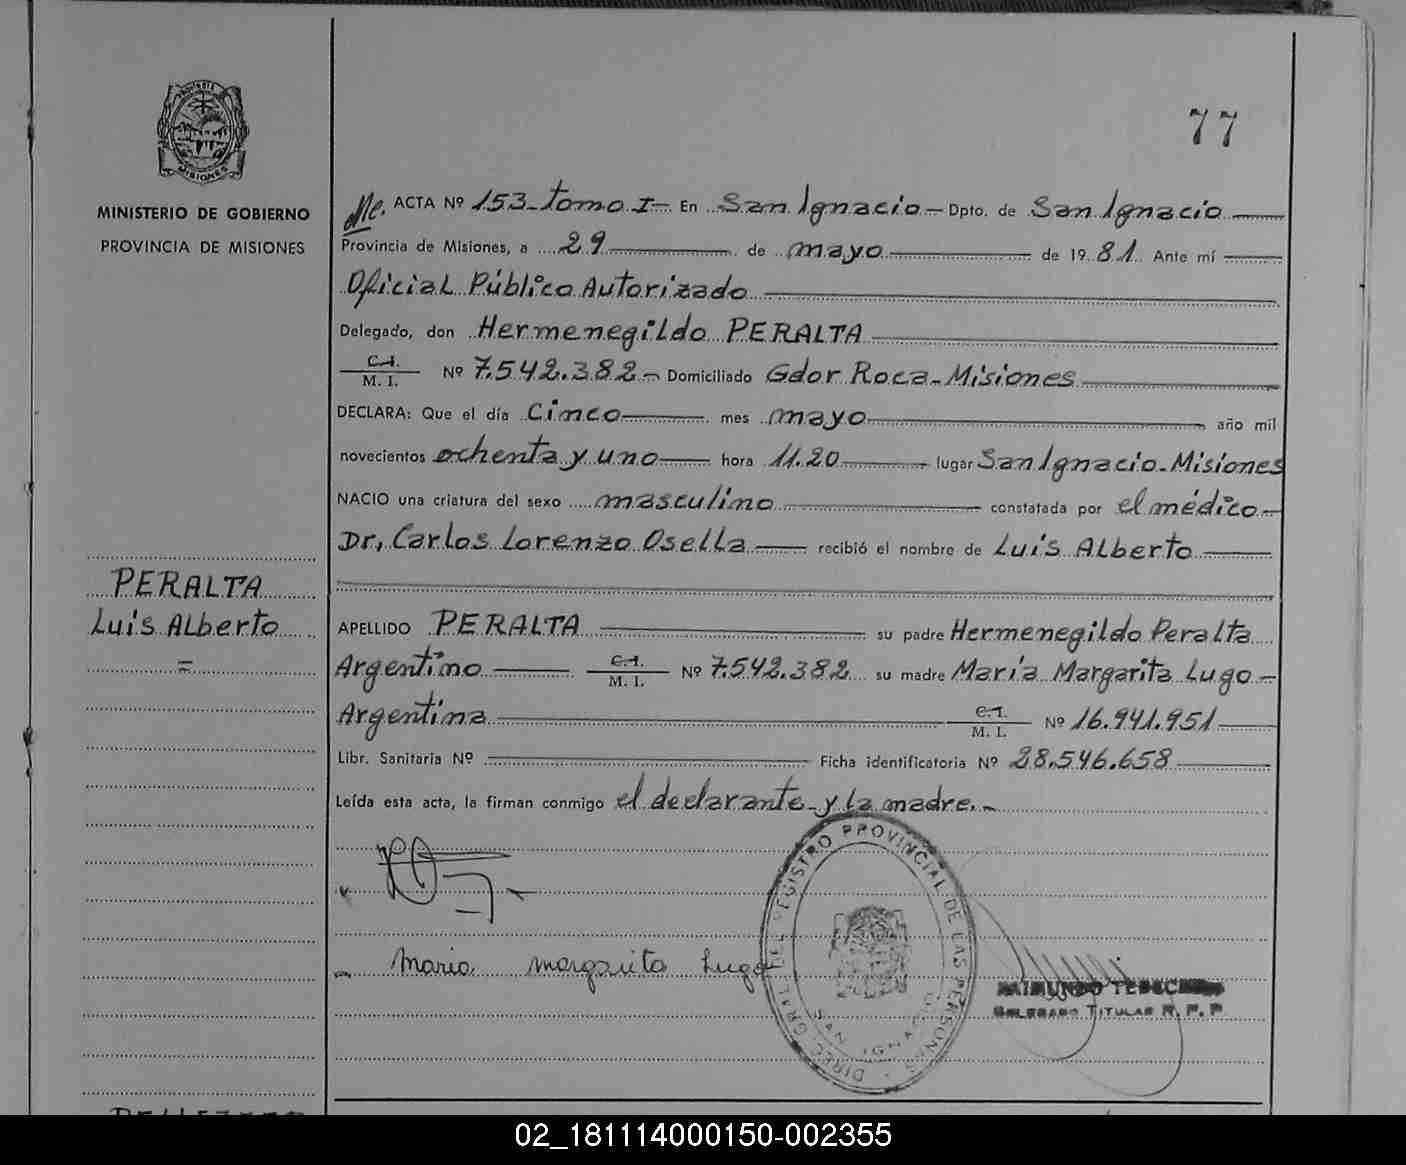 77
PROVINCIA
MISIONES
MINISTERIO DE GOBIERNO
PROVINCIA DE MISIONES
ACTA Nº 153-tomo I- En San Ignacio- Dpto. de San Ignacio
Provincia de Misiones, a 29 de mayo de 1981. Ante mí
Oficial Público Autorizado
Delegado, don Hermenegildo PERALTA
C.I.
M. I. Nº 7.542.382- Domiciliado Gdor Roca-Misiones
DECLARA: Que el día Cinco mes mayo año mil
novecientos ochenta y uno hora 11.20 lugar San Ignacio-Misiones
NACIO una criatura del sexo masculino constatada por el médico-
Dr, Carlos Lorenzo Osella recibió el nombre de Luis Alberto
PERALTA
Luis Alberto
=
APELLIDO PERALTA su padre Hermenegildo Peralta
Argentino C.I. M. I. Nº 7.542.382 su madre María Margarita Lugo-
Argentina C.I. M. I. Nº 16.941.951
Libr. Sanitaria Nº Ficha identificatoria Nº 28.546.658
Leída esta acta, la firman conmigo el declarante y la madre.-
Maria margarita Lugo
DIREC. GRAL DEL REGISTRO PROVINCIAL DE LAS PERSONAS
SAN IGNACIO
TITULAR R. P. P
02_181114000150-002355